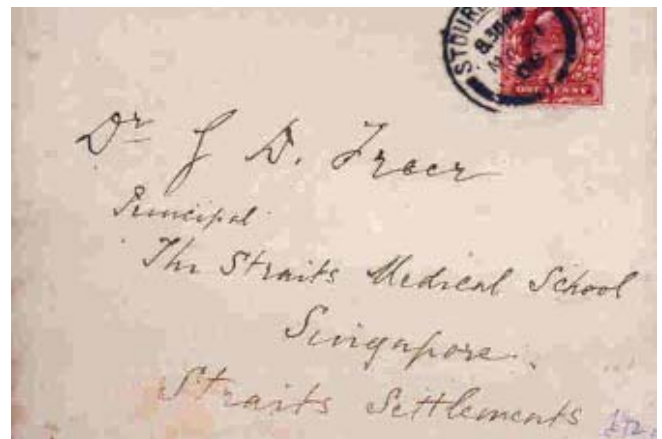 STOUR
8.30PM
ONE PENNY
Dr G D. Freer
Principal
The Straits Medical School
Singapore.
Straits Settlements